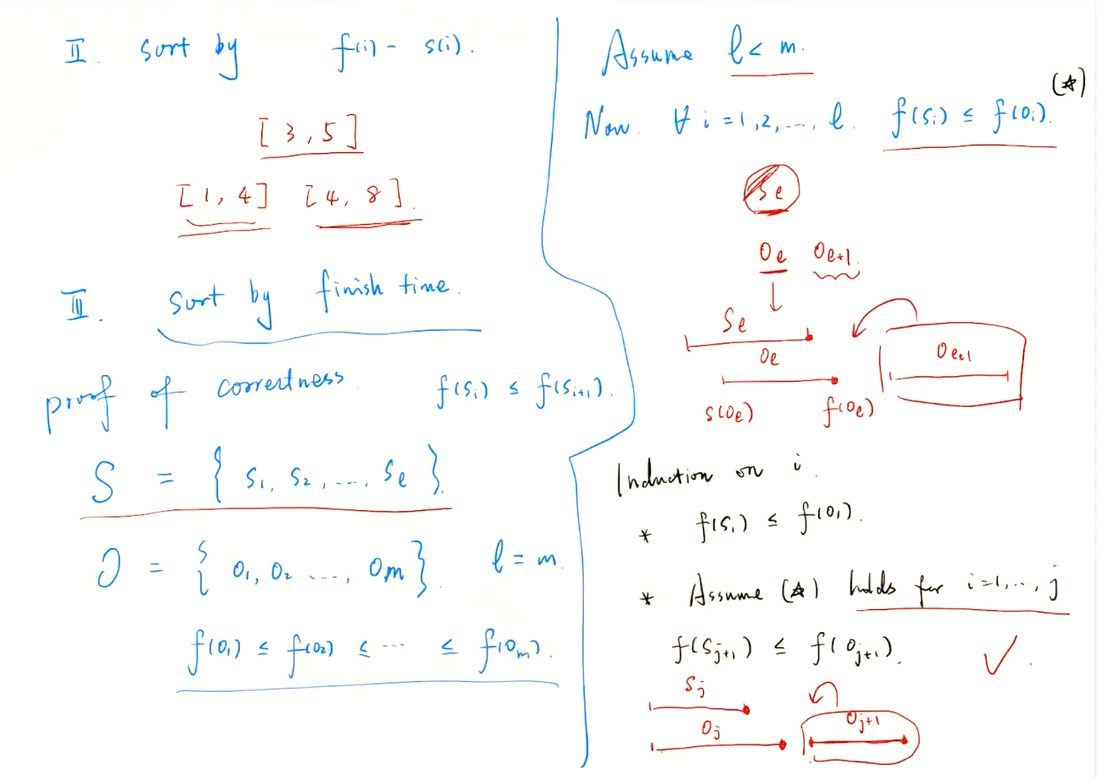 II. sort by f(i) - s(i).
[3, 5]
[1, 4] [4, 8].
III. sort by finish time.
proof of correctness. f(s₁) ≤ f(sᵢ₊₁).
S = { s₁, s₂, ..., sℓ }.
O = { o₁, o₂ ..., oₘ }. ℓ = m.
f(o₁) ≤ f(o₂) ≤ ... ≤ f(oₘ).
Assume ℓ < m.
(☆)
Now. ∀ i = 1, 2, ..., ℓ. f(sᵢ) ≤ f(oᵢ).
sℓ
oℓ oℓ₊₁.
sℓ
oℓ oℓ₊₁
s(oℓ) f(oℓ)
Induction on i.
* f(s₁) ≤ f(o₁).
* Assume (☆) holds for i=1, ..., j
f(sⱼ₊₁) ≤ f(oⱼ₊₁). ✓.
sⱼ
oⱼ oⱼ₊₁